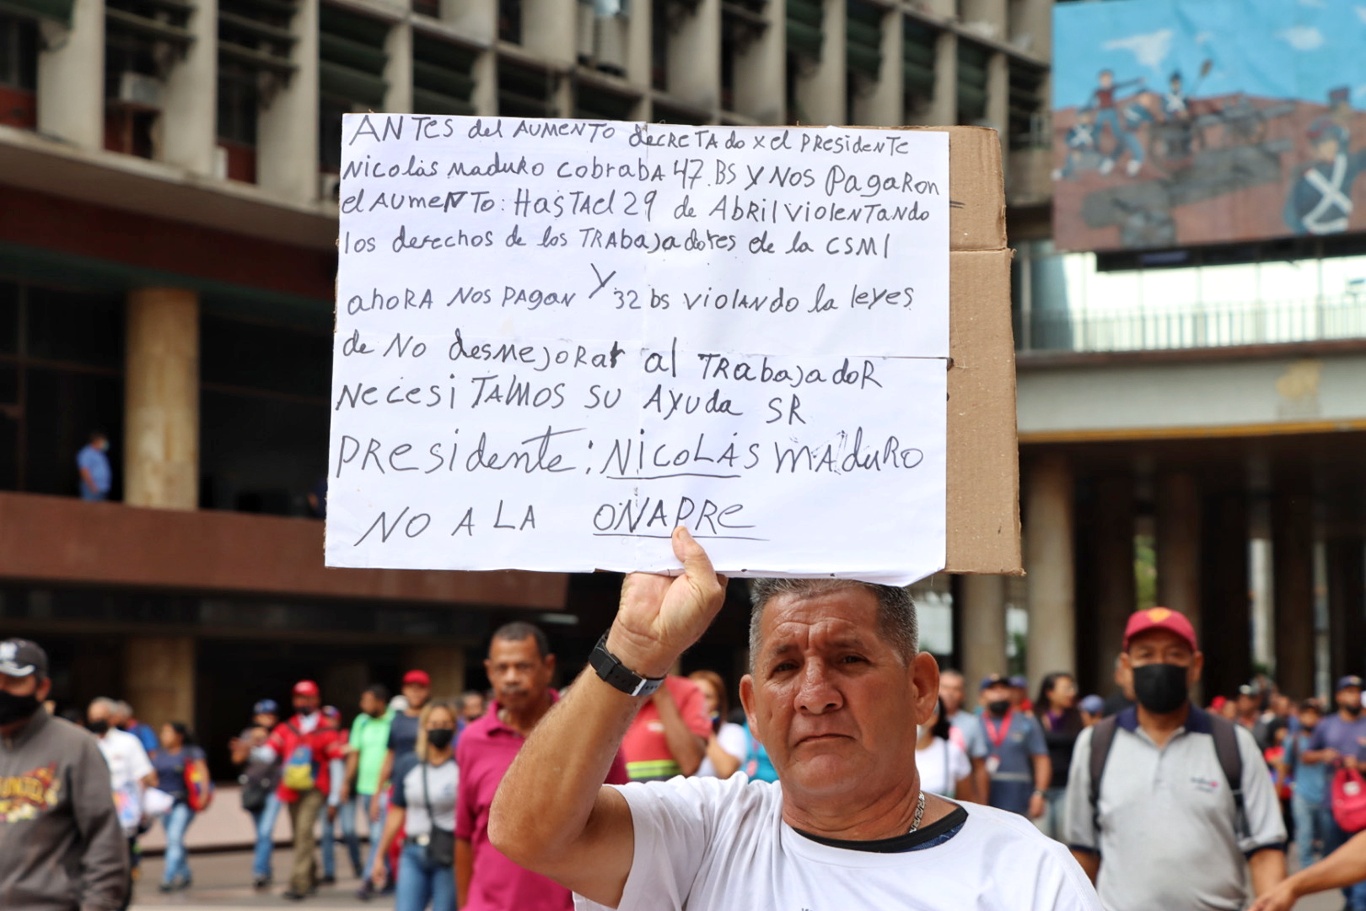 ANTES del AUMENTO decRETAdo x el PResideNte
Nicolás maduRo cobRabA 47.BS Y NOS PAgaRoN
el AUmeNTO: HasTAel 29 de AbRil VioleNTANdo
los derechos de los TRAbajadoRes de la CSMI
ahoRA NOS PAgaN Y 32 bs violANdo la leyes
de No desmejoRar al TRabajadoR
NecesiTAMOS SU AyUda SR
PResideNte: NicoLÁS MAduRo
NO A LA ONAPRe